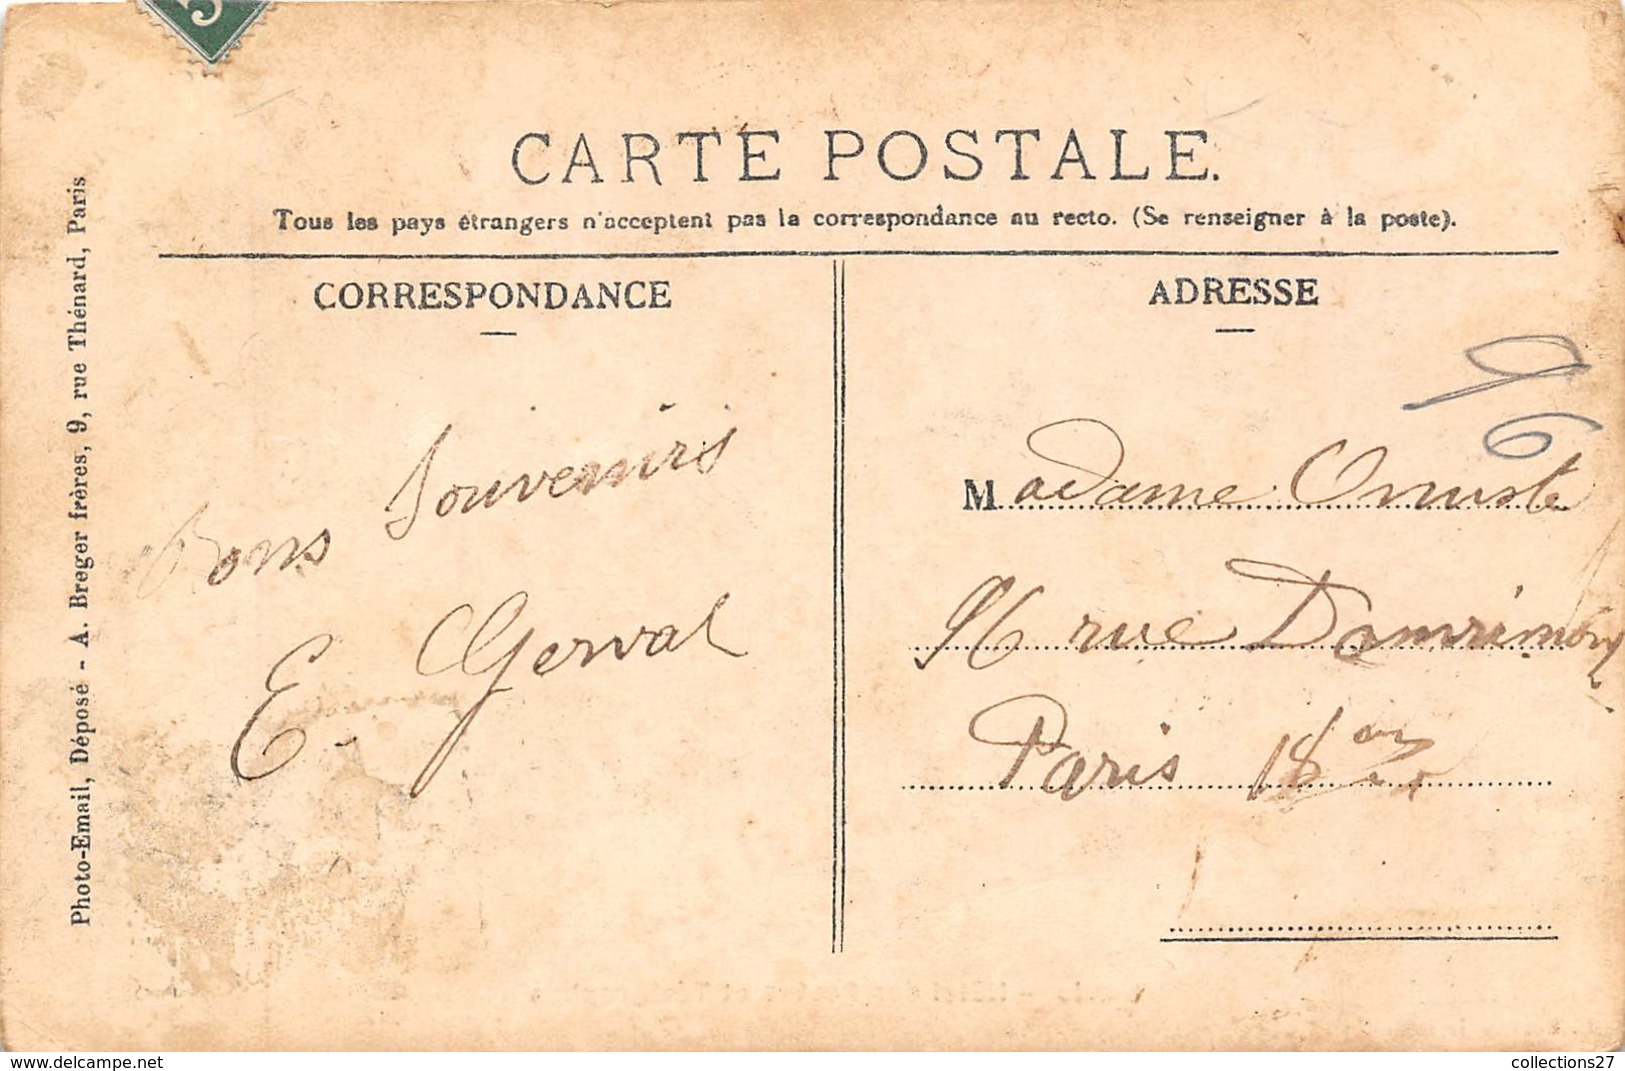 5
CARTE POSTALE.
Tous les pays étrangers n'acceptent pas la correspondance au recto. (Se renseigner à la poste).
CORRESPONDANCE
Bons Souvenirs
E. Gerval
ADRESSE
Madame
96 rue Damrémont
Paris 18
Photo-Email, Déposé - A. Breger frères, 9, rue Thénard, Paris
www.delcampe.net
collections27